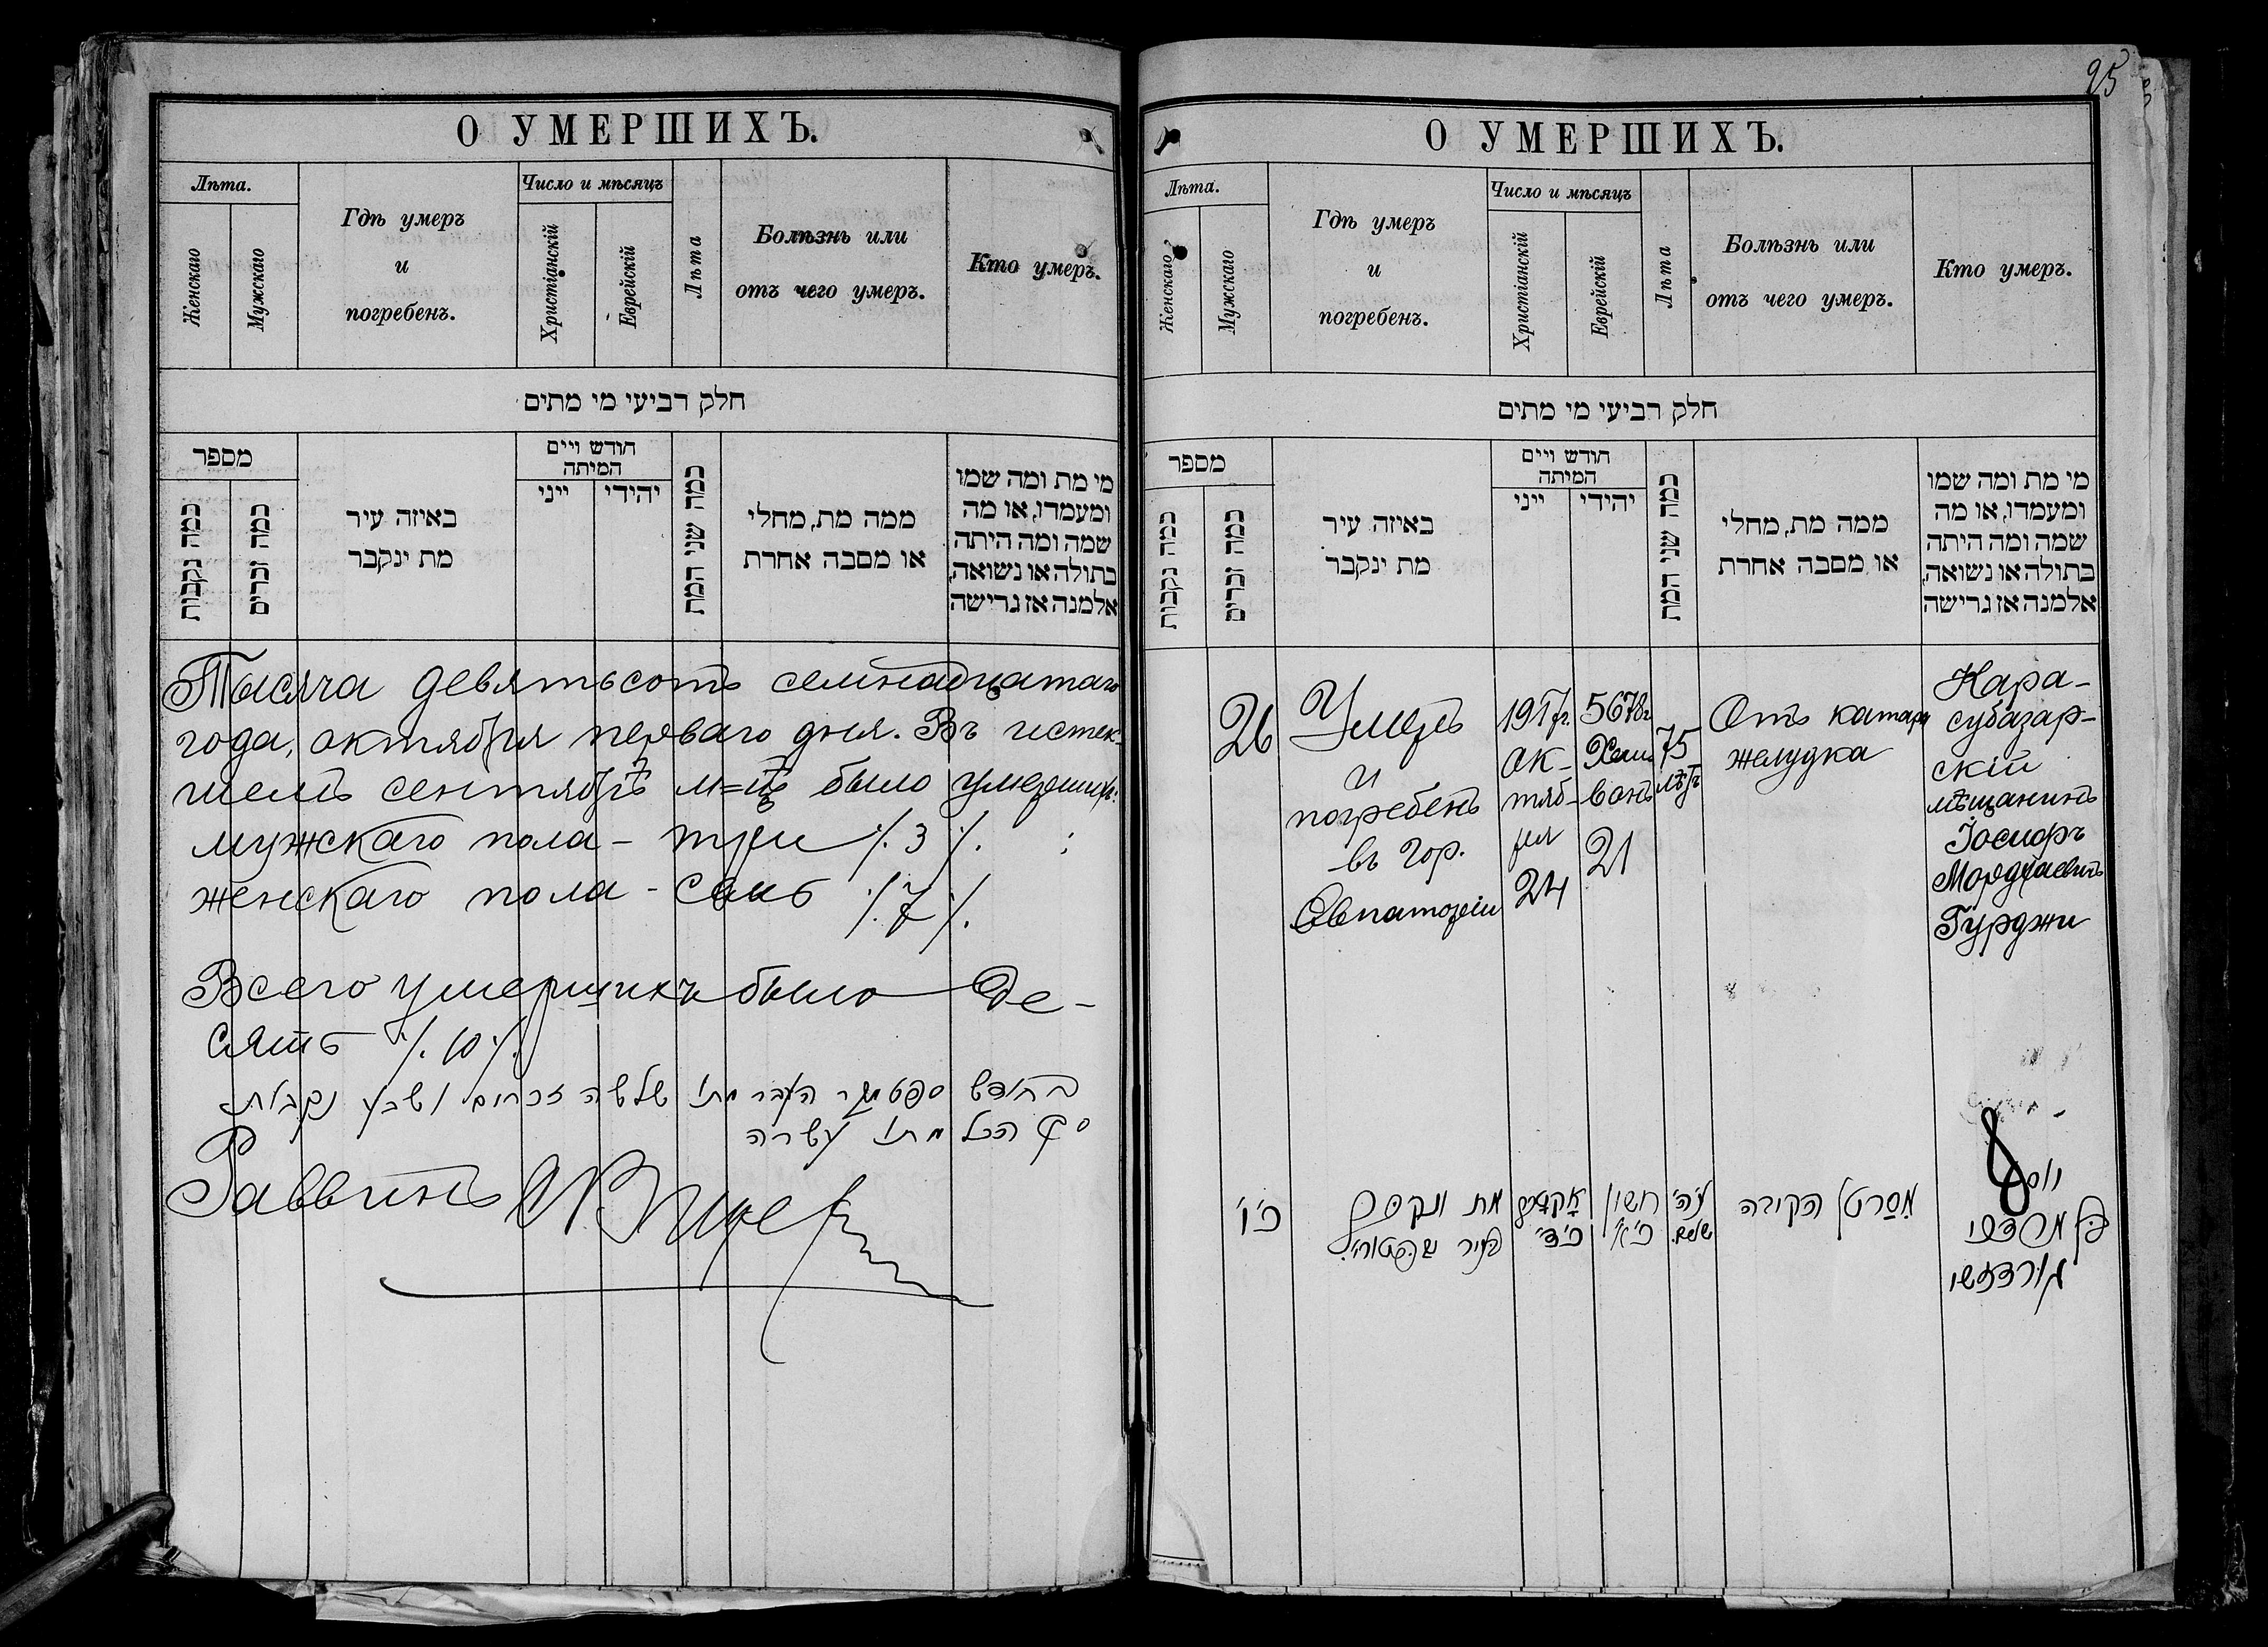 О УМЕРШИХЪ.
Лѣта.
Женскаго
Мужскаго
Гдѣ умеръ
и
погребенъ.
Число и мѣсяцъ
Христіанскій
Еврейскій
Лѣта
Болѣзнь или
отъ чего умеръ.
Кто умеръ.
חלק רביעי מי מתים
מספר
כמה נקבות
כמה זכרים
באיזה עיר
מת ינקבר
חודש ויים
המיתה
ייני
יהידי
כמה שני המת
ממה מת, מחלי
או מסבה אחרת
מי מת ומה שמו
ומעמדו, או מה
שמה ומה היתה
בתולה או נשואה,
אלמנה אז גרישה
Тысяча девятьсотъ семнадцатаго
года, октября перваго дня. Въ истек-
шемъ сентябрѣ м=цѣ было умершихъ:
мужскаго пола - три ٪ 3 ٪.
женскаго пола - семь ٪ 7 ٪.
Всего умершихъ было де-
сять ٪ 10 ٪.
בחודש ספטמבר העבר מתו שלשה זכרים ושבע נקבות
ס״ה הכל מתו עשרה
Раввинъ
25
О УМЕРШИХЪ.
Лѣта.
Женскаго
Мужскаго
Гдѣ умеръ
и
погребенъ.
Число и мѣсяцъ
Христіанскій
Еврейскій
Лѣта
Болѣзнь или
отъ чего умеръ.
Кто умеръ.
חלק רביעי מי מתים
מספר
כמה נקבות
כמה זכרים
באיזה עיר
מת ינקבר
חודש ויים
המיתה
ייני
יהידי
כמה שני המת
ממה מת, מחלי
או מסבה אחרת
מי מת ומה שמו
ומעמדו, או מה
שמה ומה היתה
בתולה או נשואה,
אלמנה אז גרישה
26
Умеръ
и
погребенъ
въ гор.
Евпаторіи
1917г.
ок-
тяб-
ря
24
5678г.
Хеш-
вонъ
21
75
лѣтъ
Отъ катара
желудка
Кара-
субазар-
скій
мѣщанинъ
Іосифъ
Мордхаевичъ
Гурджи
כ״ו
מת ונקבר
בעיר
כ״ד
חשון
כ״א
ע״ה
שנים
הקיבה
יוסף
בן מרדכי
גורדזשי